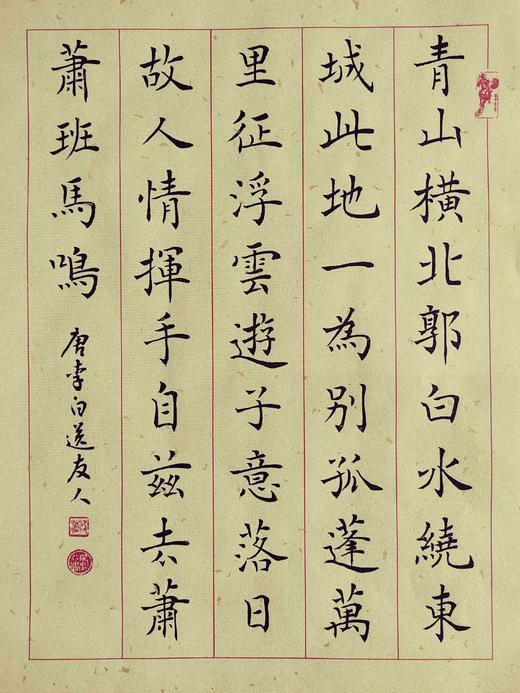 青山橫北郭白水繞東
城此地一為別孤蓬萬
里征浮雲遊子意落日
故人情揮手自茲去蕭
蕭班馬鳴
唐李白送友人